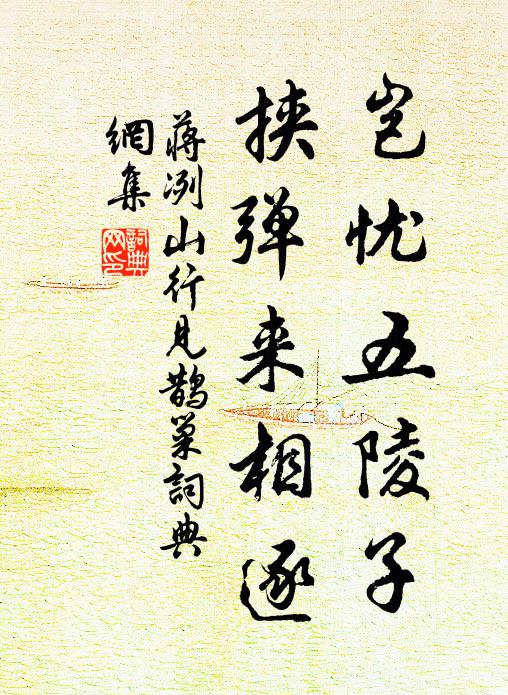 岂忧五陵子
挟弹来相逐
蒋冽山行见鹊巢詞典
網集
詞典
网印